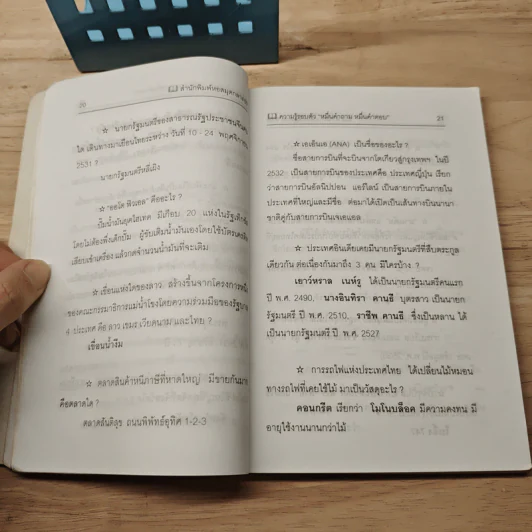 20
สำนักพิมพ์หอสมุดกลาง
☆ นายกรัฐมนตรีของสาธารณรัฐประชาชนจีนคน
ใด เดินทางมาเยือนไทยระหว่าง วันที่ 10 - 24 พฤศจิกายน
2531 ?
นายกรัฐมนตรีหลี่เผิง
☆ "ออโต พิวเอล" คืออะไร ?
ปั๊มน้ำมันยุคไฮเทค มีเกือบ 20 แห่งในรัฐเท็กซัส
โดยไม่ต้องพึ่งเด็กปั๊ม ผู้ขับเติมน้ำมันเองโดยใช้บัตรเครดิต
เสียบเข้าเครื่อง แล้วกดจำนวนน้ำมันที่จะเติม
☆ เขื่อนแห่งใดของลาว สร้างขึ้นจากโครงการหนึ่ง
ของคณะกรรมาธิการแม่น้ำโขงโดยความร่วมมือของรัฐบาล
4 ประเทศ คือ ลาว เขมร เวียดนาม และไทย ?
เขื่อนน้ำงึม
☆ ตลาดสินค้าหนีภาษีที่หาดใหญ่ มีขายกันมาก
คือตลาดใด ?
ตลาดสันติสุข ถนนนิพัทธ์อุทิศ 1-2-3
ความรู้รอบตัว "หมื่นคำถาม หมื่นคำตอบ"
21
☆ เอเอ็นเอ (ANA) เป็นชื่อของอะไร ?
ชื่อสายการบินที่จะบินจากโตเกียวสู่กรุงเทพฯ ในปี
2532 เป็นสายการบินของประเทศคือ ประเทศญี่ปุ่น เรียก
ว่าสายการบินออลนิปปอน แอร์ไลน์ เป็นสายการบินภายใน
ประเทศที่ใหญ่และมีชื่อ ต่อมาได้เปิดเป็นเส้นทางบินนานา
ชาติคู่กับสายการบินเจเอแอล
☆ ประเทศอินเดียเคยมีนายกรัฐมนตรีที่สืบตระกูล
เดียวกัน ต่อเนื่องกันมาถึง 3 คน มีใครบ้าง ?
เยาว์หราล เนห์รู ได้เป็นนายกรัฐมนตรีคนแรก
ปี พ.ศ. 2490, นางอินทิรา คานธี บุตรสาว เป็นนายก
รัฐมนตรี ปี พ.ศ. 2510, ราชีพ คานธี ซึ่งเป็นหลาน ได้
เป็นนายกรัฐมนตรี ปี พ.ศ. 2527
☆ การรถไฟแห่งประเทศไทย ได้เปลี่ยนไม้หมอน
ทางรถไฟที่เคยใช้ไม้ มาเป็นวัสดุอะไร ?
คอนกรีต เรียกว่า โมโนบล็อค มีความคงทน มี
อายุใช้งานนานกว่าไม้